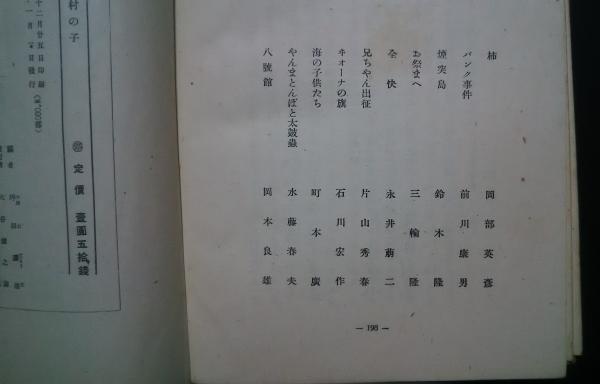 柿　岡部英彦
パンク事件　前川康男
煙突島　鈴木隆
お祭まへ　三輪隆
全快　永井萠二
兄ちやん出征　片山秀春
ヰオーナの旗　石川宏作
海の子供たち　町本廣
やんまとんぼと太鼓蟲　水藤春夫
八號館　岡本良雄
— 198 —
村の子
十二月廿五日印刷
定價 壹圓五拾錢